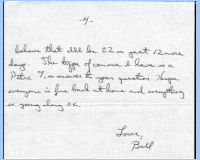 -4-
believe that I'll be 22 in just 12 more
days. The type of camera I have is a
Petri 7, in answer to your question. Hope
everyone is fine back at home and everything
is going along OK.
Love,
Bill